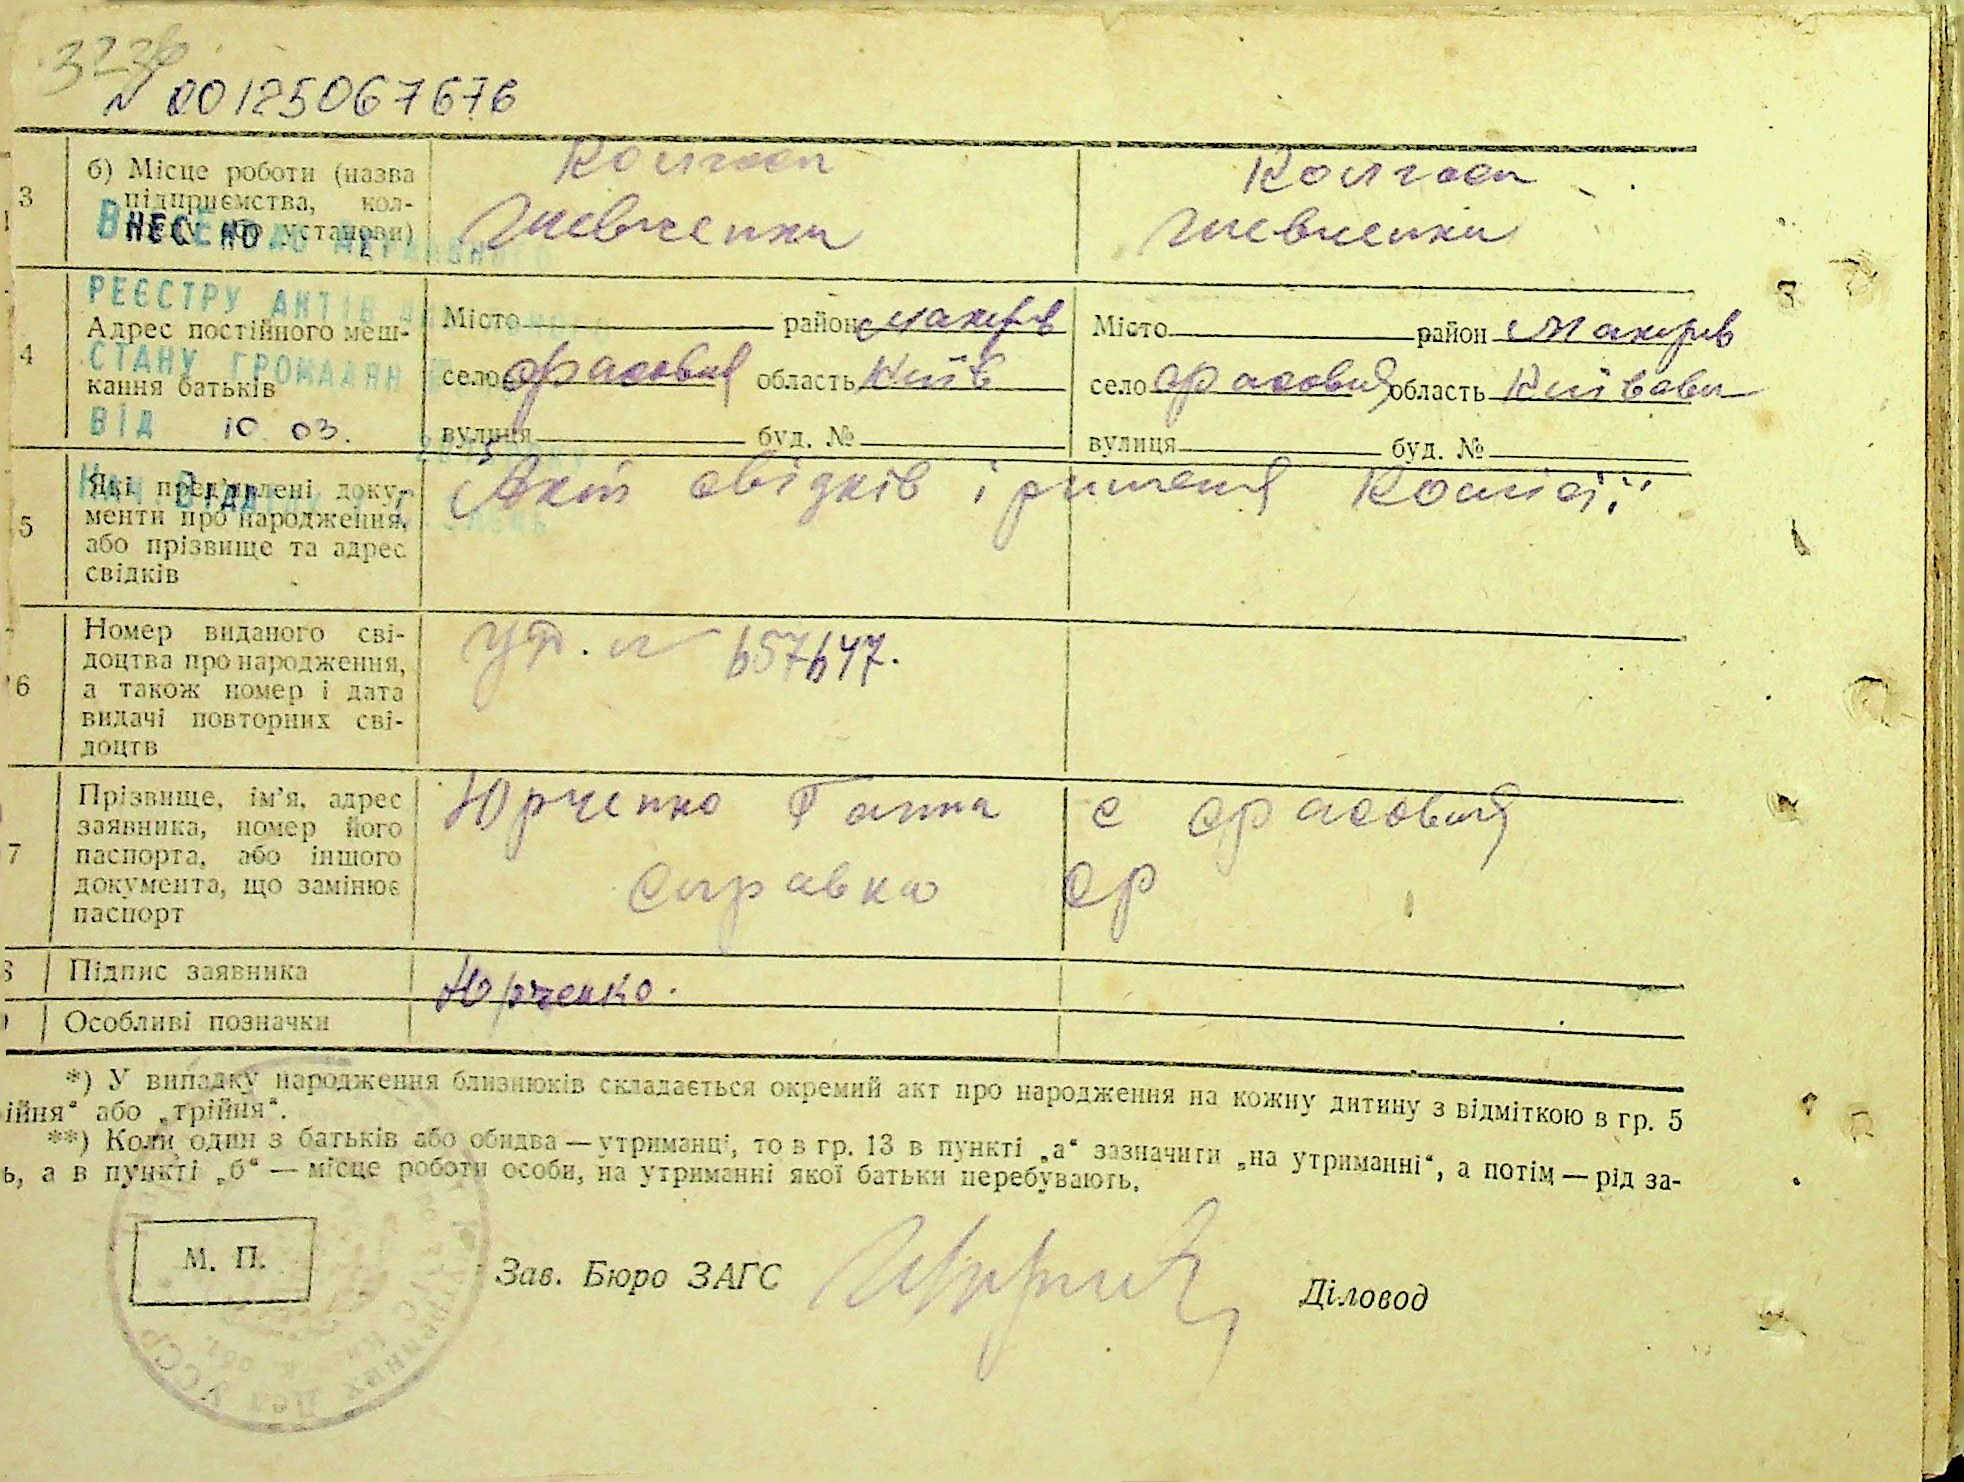 № 00125067676
3
б) Місце роботи (назва
підприємства, кол-
установи)
Колгосп
Шевченка
Колгосп
Шевченка
ВНЕСЕНО ДО ДЕРЖАВНОГО
РЕЄСТРУ АКТІВ
СТАНУ ГРОМАДЯН
ВІД 10.03.
4
Адрес постійного меш-
кання батьків
Місто район Макарів
село область Київ
вулиця буд. №
Місто район Макарів
село область Київська
вулиця буд. №
5
Які пред'явлені доку-
менти про народження,
або прізвище та адрес
свідків
Акт свідків і рішення Комісії
6
Номер виданого сві-
доцтва про народження,
а також номер і дата
видачі повторних сві-
доцтв
657647.
7
Прізвище, ім'я, адрес
заявника, номер його
паспорта, або іншого
документа, що замінює
паспорт
Юрченко Ганна с
справка
Підпис заявника
Юрченко.
Особливі позначки
*) У випадку народження близнюків складається окремий акт про народження на кожну дитину з відміткою в гр. 5
ійня“ або „трійня“.
**) Коли один з батьків або обидва — утриманці, то в гр. 13 в пункті „а“ зазначити „на утриманні“, а потім — рід за-
ь, а в пункті „б“ — місце роботи особи, на утриманні якої батьки перебувають.
М. П.
Зав. Бюро ЗАГС
Діловод